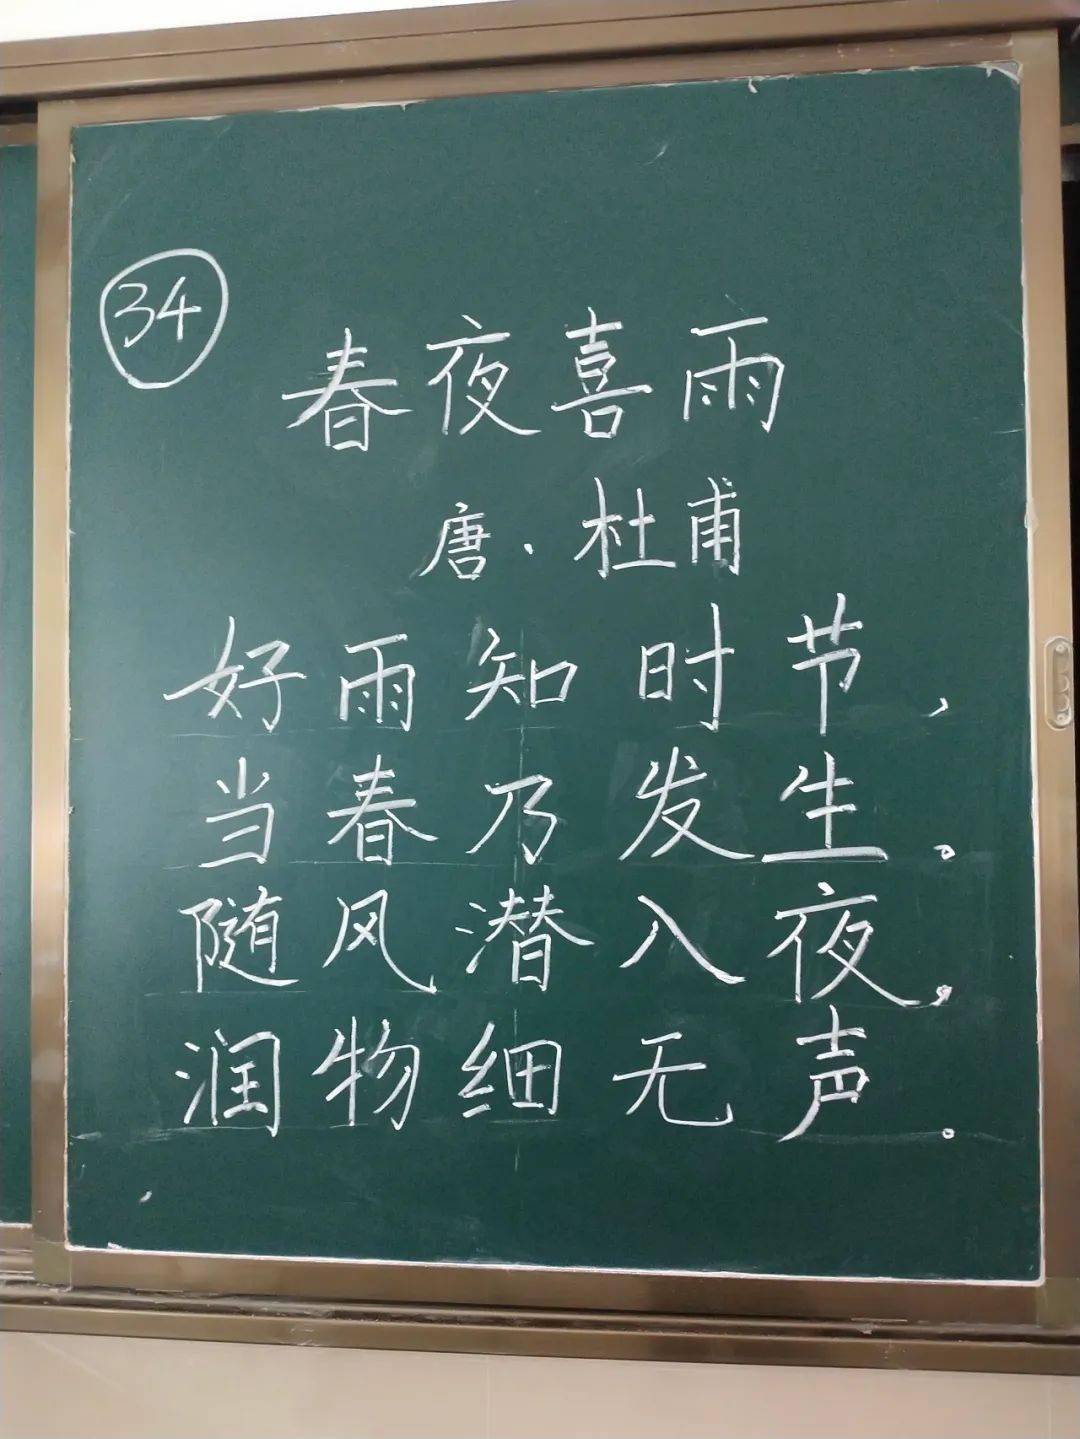 34
春夜喜雨
唐·杜甫
好雨知时节,
当春乃发生。
随风潜入夜,
润物细无声。